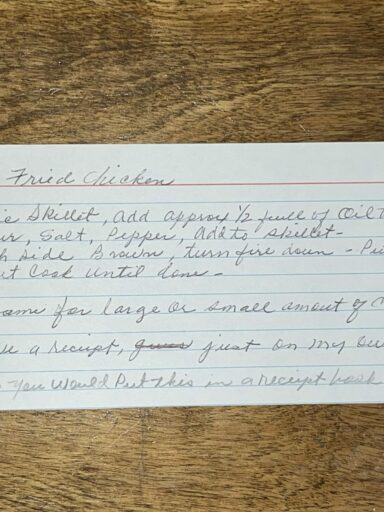 Fried Chicken
ic Skillet, add approx 1/2 full of Oil T
ur, Salt, Pepper, Add to skillet-
h side Brown, turn fire down - Pu
ut Cook until done -
ame for large or small amout of C
a receipt, just on my ow
you Would Put this in a receipt book